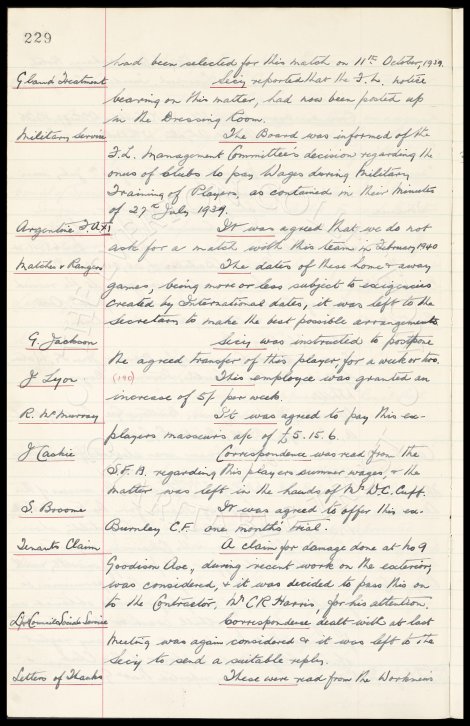 229
had been selected for this match on 11th October, 1939.
Gland Treatment Secy reported that the F.L. notice
bearing on this matter, had now been posted up
in the Dressing Room.
Military Service The Board was informed of the
F.L. Management Committee's decision regarding the
onus of Clubs to pay Wages during Military
Training of Players, as contained in their Minutes
of 27th July 1939.
Argentine F.A. XI It was agreed that we do not
ask for a match with this team in February 1940
Matches v Rangers The dates of these home & away
games, being more or less subject to exigencies
created by International dates, it was left to the
Secretary to make the best possible arrangements
G. Jackson Secy was instructed to postpone
the agreed transfer of this player for a week or two.
J Lyon (190) This employee was granted an
increase of 5/ per week.
R. McMurray It was agreed to pay this ex-
players masseurs a/c of £5.15.6.
J Caskie Correspondence was read from the
S.F.A. regarding this players summer wages, & the
matter was left in the hands of Mr W.C. Cuff.
S. Broome It was agreed to offer this ex-
Burnley C.F. one month's trial.
Tenants Claim A claim for damage done at No 9
Goodison Ave, during recent work on the exterior,
was considered, & it was decided to pass this on
to the Contractor, Mr C.R. Harris, for his attention.
Council Social Service Correspondence dealt with at last
Meeting was again considered & it was left to the
Secy to send a suitable reply.
Letters of Thanks These were read from the Workmens